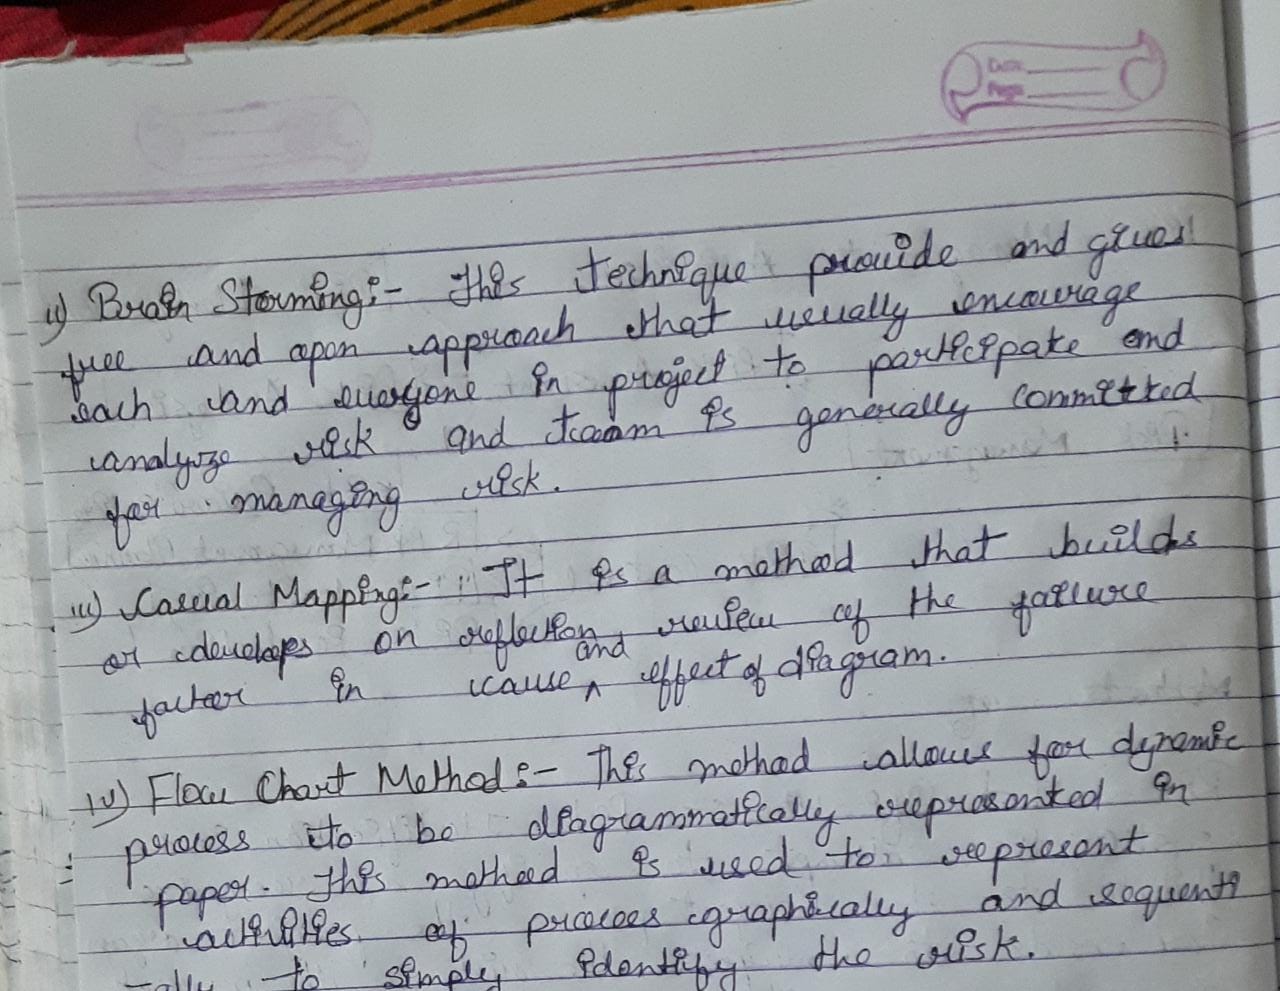 Date
Page
ii) Brain Storming:- This technique provide and gives
free and open approach that usually encourage
each and everyone in project to participate and
analyze risk and team is generally committed
for managing risk.
iii) Casual Mapping:- It is a method that builds
or developes on reflection, review of the failure
factor in cause and effect of diagram.
iv) Flow Chart Method:- This method allows for dynamic
process to be diagrammatically represented in
paper. This method is used to represent
activities of process graphically and sequenti
-ally to simply identify the risk.